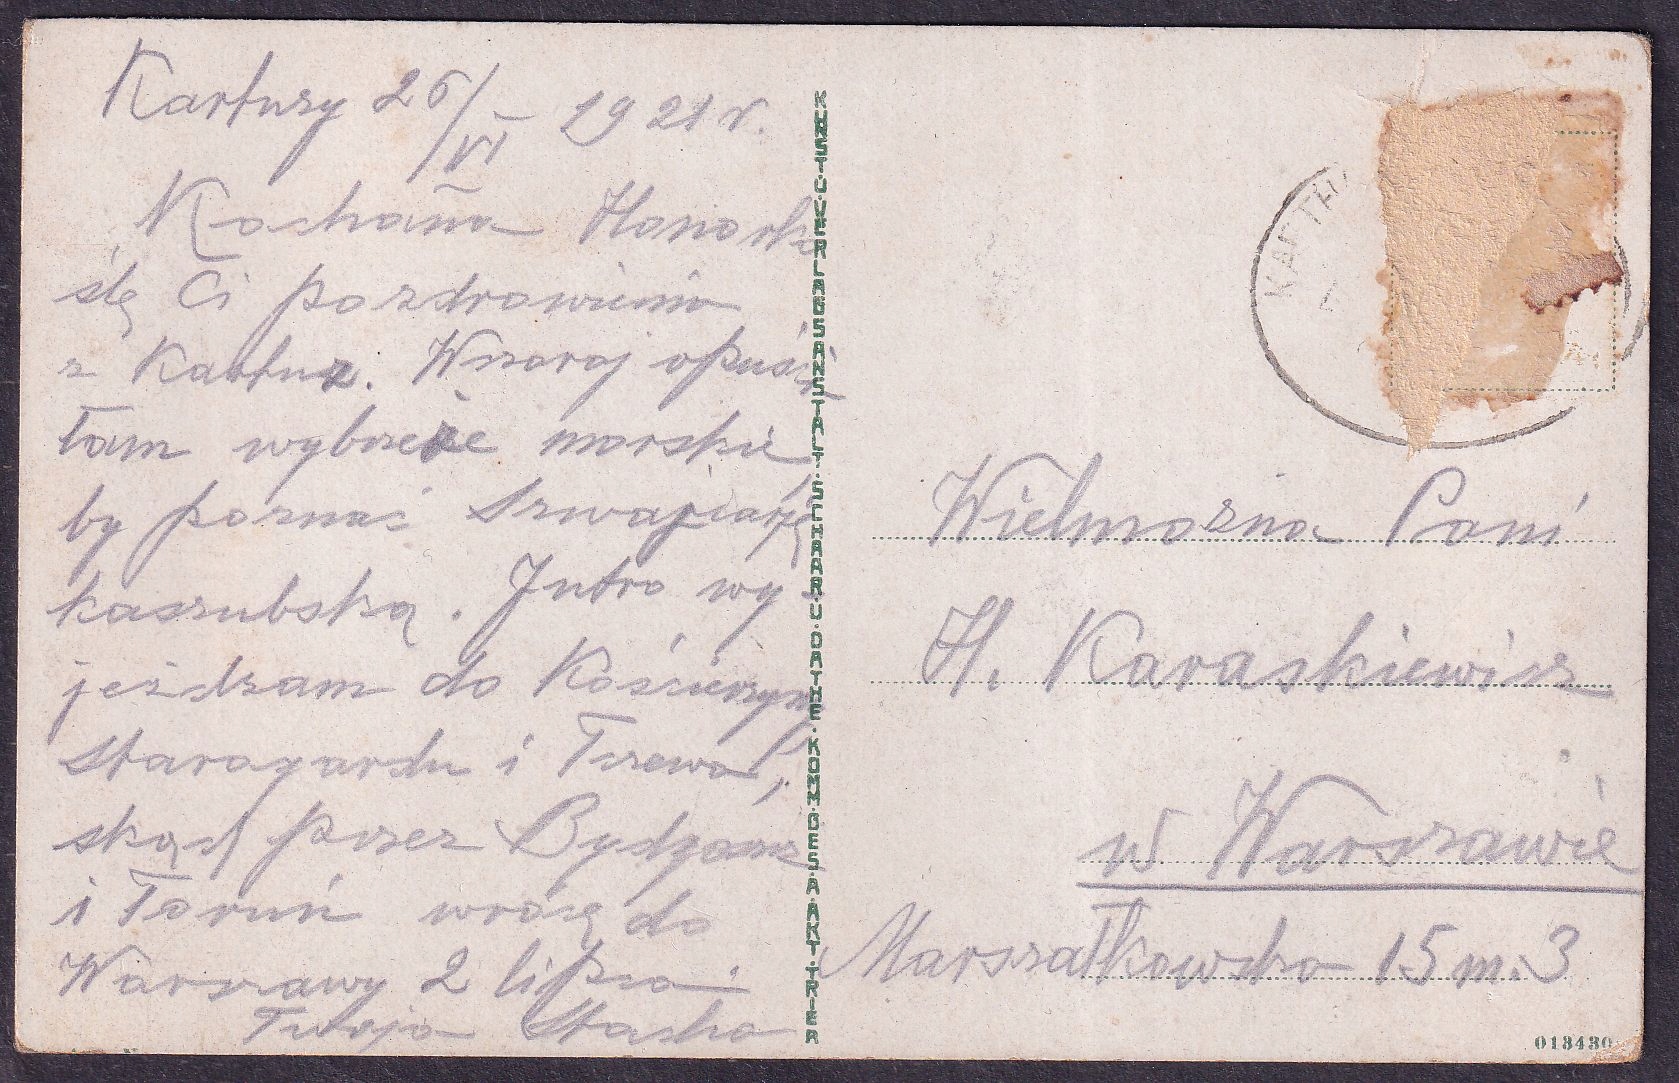 Kartuzy 26/VI 1921 r.
Kochana Honorko
ślę Ci pozdrowienia
z Kartuz. Wczoraj opuści
łam wybrzeże morskie
by poznać Szwajcarję
kaszubską. Jutro wy-
jeżdżam do Kościerzyny
Starogardu i Tczewa,
skąd przez Bydgoszcz
i Toruń wrócę do
Warszawy 2 lipca.
Twoja Stacha
KUNST.U.VERLAGSANSTALT.SCHAAR.U.DATHE.KOMM.GES.A.AKT.TRIER
KARTHU
Wielmożna Pani
H. Karaskiewicz
w Warszawie
Marszałkowska 15 m. 3
013430